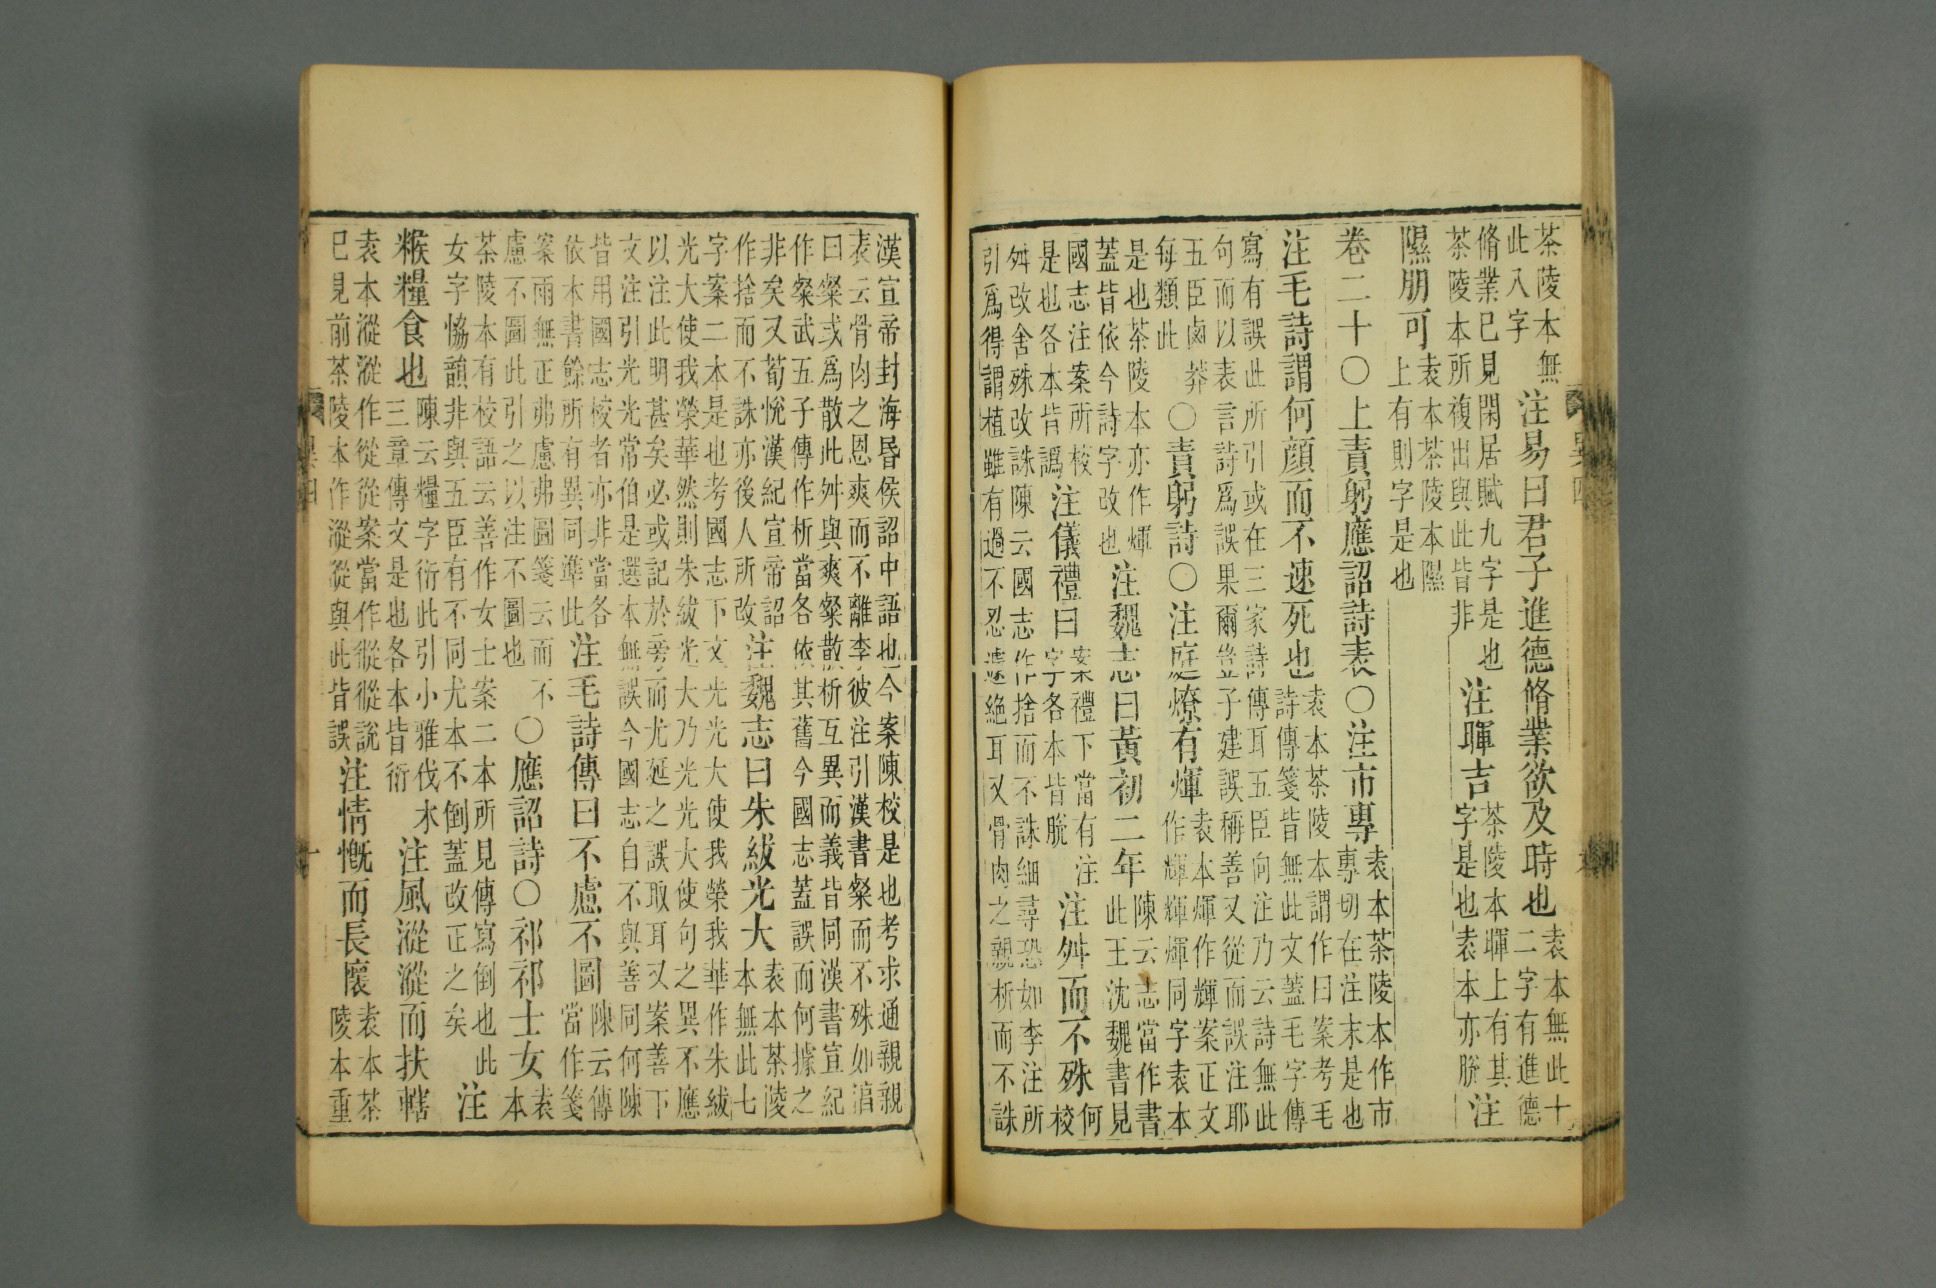 茶陵本無
此入字
注易曰君子進德脩業欲及時也
袁本無此十
二字有進德
脩業巳見閑居賦九字是也
茶陵本所複出與此皆非
注暉吉
茶陵本暉上有其
字是也袁本亦脫
注
隰朋可
袁本茶陵本隰
上有則字是也
卷二十○上責躬應詔詩表○注市專
袁本茶陵本作市
專切在注末是也
注毛詩謂何顏而不速死也
袁本茶陵本謂作曰案考毛
詩傳箋皆無此文蓋毛字傳
寫有誤此所引或在三家詩傳耳五臣向注乃云詩無此
句而以表言詩爲誤果爾豈子建誤稱善又從而誤注耶
五臣鹵莽
每類此
○責躬詩○注庭燎有煇
袁本煇作輝案正文
作輝輝煇同字袁本
是也茶陵本亦作煇
蓋皆依今詩字改也
注魏志曰黃初二年
陳云志當作書
此王沈魏書見
國志注案所校
是也各本皆譌
注儀禮曰
案禮下當有注
字各本皆脫
注舛而不殊
何
校
舛改舍殊改誅陳云國志作捨而不誅細尋恐如李注所
引爲得謂植雖有過不忍遽絕耳又骨肉之親析而不誅
漢宣帝封海昏侯詔中語也今案陳校是也考求通親親
表云骨肉之恩爽而不離李彼注引漢書粲而不殊如淳
曰粲或爲散此舛與爽粲散析互異而義皆同漢書宣紀
作粲武五子傳作析當各依其舊今國志蓋誤而何據之
非矣又荀悅漢紀宣帝詔
作捨而不誅亦後人所改
注魏志曰朱紱光大
袁本茶陵
本無此七
字案二本是也考國志下文光光大使我榮我華作朱紱
光大使我榮華然則朱紱光大乃光光大使句之異不應
以注此明甚矣必或記於旁而尤延之誤取耳又案善下
文注引光光常伯是選本無誤今國志自不與善同何陳
皆用國志校者亦非當各
依本書餘所有異同準此
注毛詩傳曰不慮不圖
陳云傳
當作箋
案雨無正弗慮弗圖箋云而不
慮不圖此引之以注不圖也
○應詔詩○祁祁士女
袁
本
茶陵本有校語云善作女士案二本所見傳寫倒也此
女字恊韻非與五臣有不同尤本不倒蓋改正之矣
注
糇糧食也
陳云糧字衍此引小雅伐木
三章傳文是也各本皆衍
注風漎漎而扶轄
袁本漎漎作從從案當作縱縱說
巳見前茶陵本作漎漎與此皆誤
注情慨而長懷
袁本茶
陵本重